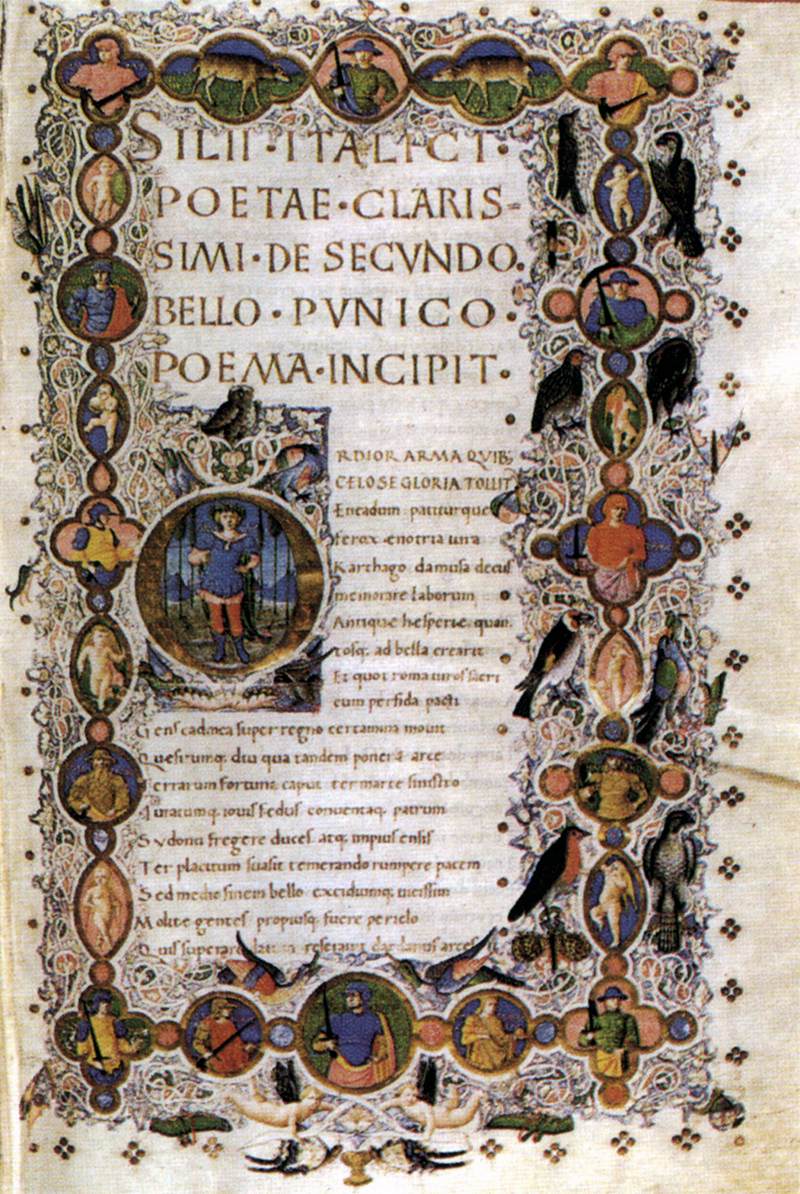 SILII·ITALICI·
POETAE·CLARIS-
SIMI·DE SECVNDO.
BELLO·PVNICO·
POEMA·INCIPIT·
ORDIOR ARMA QVIB;
CELO SE GLORIA TOLLIT
Eneadum patiturque
ferox enotria iura
Karthago da musa decus
memorare laborum
Antique hesperie. quan
tosq; ad bella crearit
Et quot roma uiros sacri
cum perfida pacti
Gens cadmea super regno certamina mouit
Quesitumq; diu qua tandem poneret arce
Terrarum fortuna caput ter marte sinistro
Iuratumq; iouis fedus conuentaq; patrum
Sydonii fregere duces atq; impius ensis
Ter placitum suasit temerando rumpere pacem
Sed medio finem bello excidiumq; uicissim
Molite gentes propiusq; fuere periclo
Quis superare datum reserauit dardanus arces